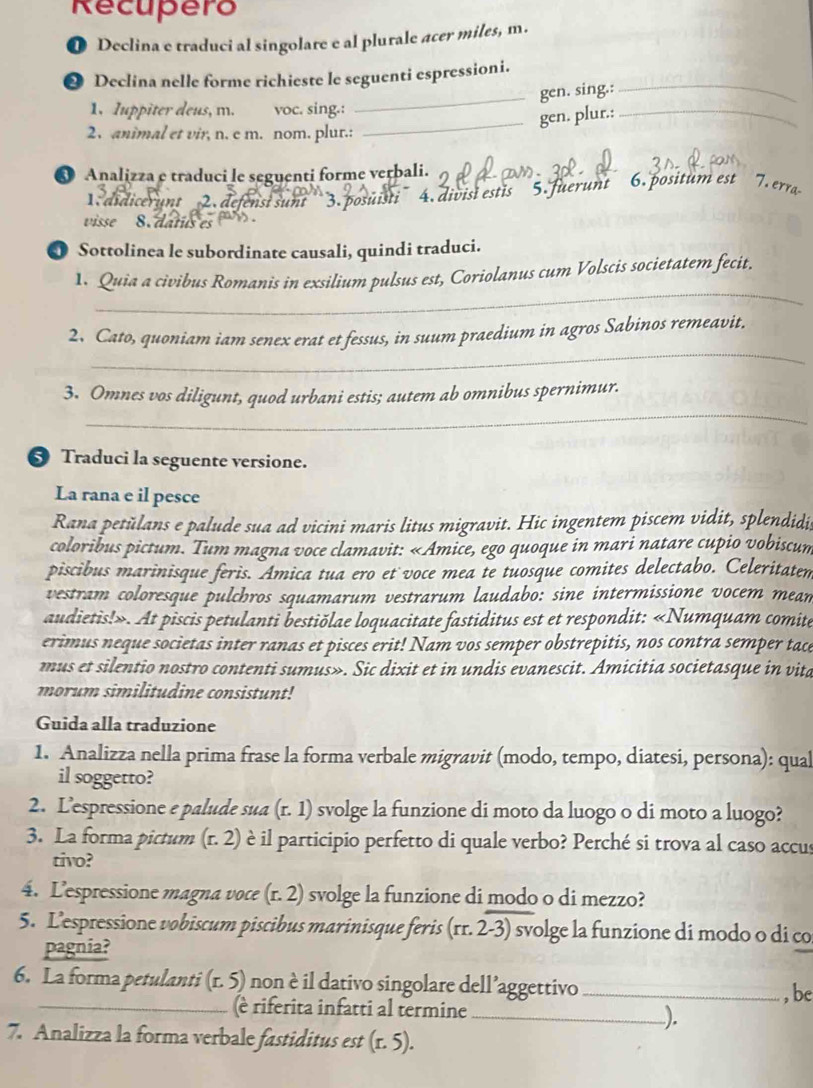 Recupero
1 Declina e traduci al singolare e al plurale acer miles, m.
2 Declina nelle forme richieste le seguenti espressioni.
1. Iuppiter deus, m. voc. sing.: gen. sing.:
2. animal et vir, n. e m. nom. plur.: gen. plur.:
3 Analizza e traduci le seguenti forme verbali.
2 pl. pass. 3 pl. 3 s. pass
1. didicerunt 2. defensi sunt 3. posuisti 4. divisi estis 5. fuerunt 6. positum est 7. erra-
visse 8. datus es pass.
4 Sottolinea le subordinate causali, quindi traduci.
1. Quia a civibus Romanis in exsilium pulsus est, Coriolanus cum Volscis societatem fecit.
2. Cato, quoniam iam senex erat et fessus, in suum praedium in agros Sabinos remeavit.
3. Omnes vos diligunt, quod urbani estis; autem ab omnibus spernimur.
5 Traduci la seguente versione.
La rana e il pesce
Rana petŭlans e palude sua ad vicini maris litus migravit. Hic ingentem piscem vidit, splendidis
coloribus pictum. Tum magna voce clamavit: «Amice, ego quoque in mari natare cupio vobiscum
piscibus marinisque feris. Amica tua ero et voce mea te tuosque comites delectabo. Celeritatem
vestram coloresque pulchros squamarum vestrarum laudabo: sine intermissione vocem meam
audietis!». At piscis petulanti bestiŏlae loquacitate fastiditus est et respondit: «Numquam comite
erimus neque societas inter ranas et pisces erit! Nam vos semper obstrepitis, nos contra semper tace
mus et silentio nostro contenti sumus». Sic dixit et in undis evanescit. Amicitia societasque in vita
morum similitudine consistunt!
Guida alla traduzione
1. Analizza nella prima frase la forma verbale migravit (modo, tempo, diatesi, persona): qual
il soggetto?
2. L'espressione e palude sua (r. 1) svolge la funzione di moto da luogo o di moto a luogo?
3. La forma pictum (r. 2) è il participio perfetto di quale verbo? Perché si trova al caso accus
tivo?
4. L'espressione magna voce (r. 2) svolge la funzione di modo o di mezzo?
5. L'espressione vobiscum piscibus marinisque feris (rr. 2-3) svolge la funzione di modo o di co
pagnia?
6. La forma petulanti (r. 5) non è il dativo singolare dell'aggettivo , be
(è riferita infatti al termine ).
7. Analizza la forma verbale fastiditus est (r. 5).